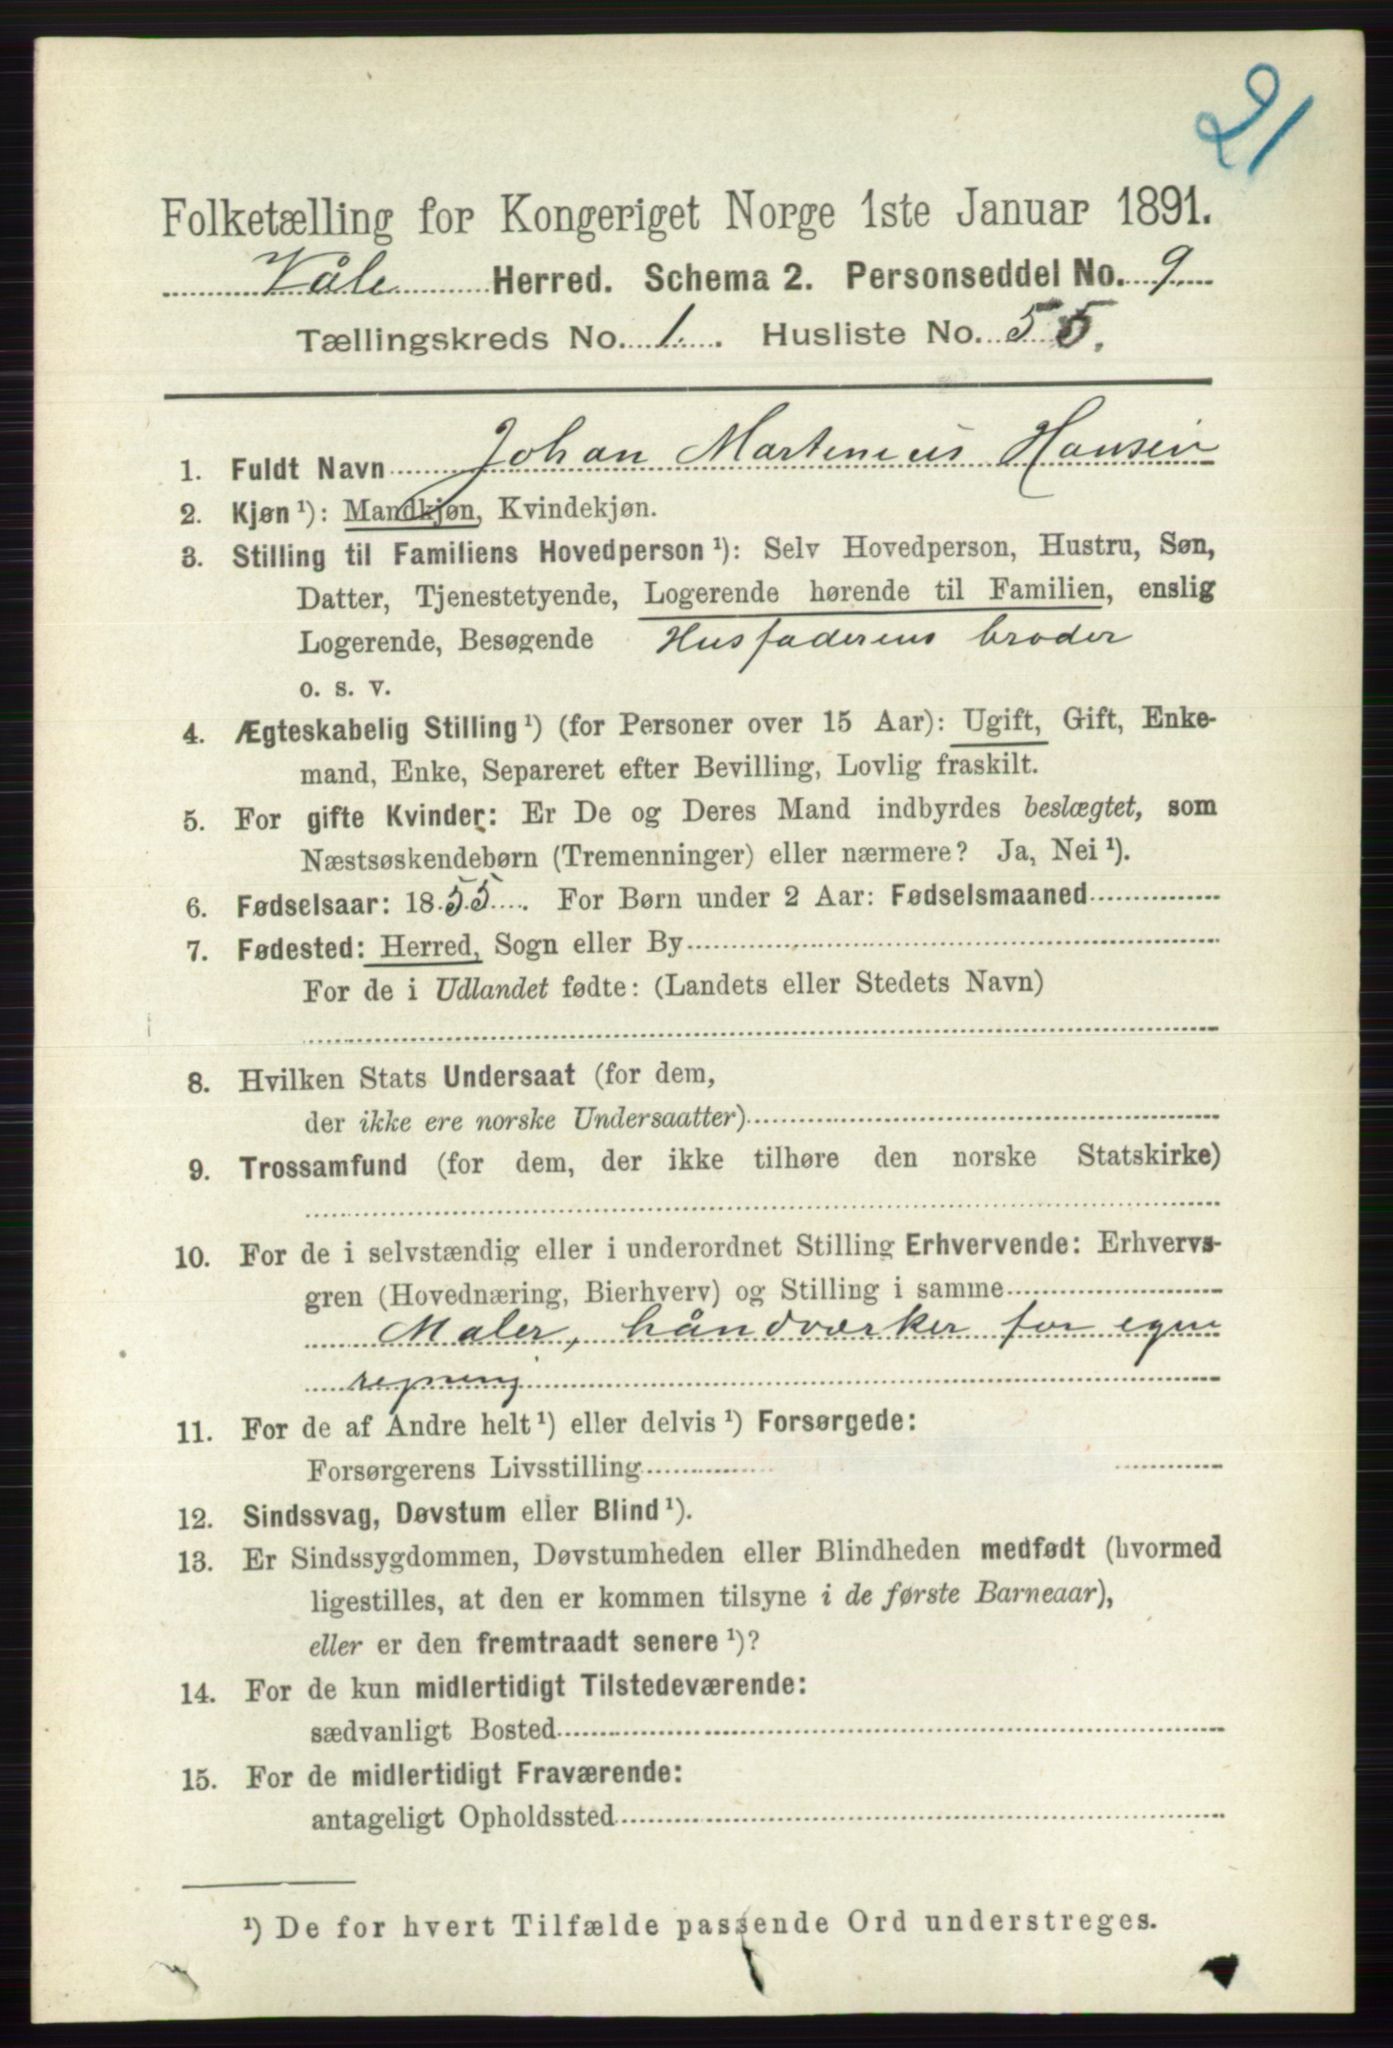 21
Folketælling for Kongeriget Norge 1ste Januar 1891.
Våle Herred. Schema 2. Personseddel No. 9
Tællingskreds No. 1. Husliste No. 55.
1. Fuldt Navn Johan Martinius Hansen
2. Kjøn ¹): Mandkjøn, Kvindekjøn.
3. Stilling til Familiens Hovedperson ¹): Selv Hovedperson, Hustru, Søn,
Datter, Tjenestetyende, Logerende hørende til Familien, enslig
Logerende, Besøgende Husfaderens broder
o. s. v.
4. Ægteskabelig Stilling ¹) (for Personer over 15 Aar): Ugift, Gift, Enke-
mand, Enke, Separeret efter Bevilling, Lovlig fraskilt.
5. For gifte Kvinder: Er De og Deres Mand indbyrdes beslægtet, som
Næstsøskendebørn (Tremenninger) eller nærmere? Ja, Nei ¹).
6. Fødselsaar: 1855. For Børn under 2 Aar: Fødselsmaaned
7. Fødested: Herred, Sogn eller By
For de i Udlandet fødte: (Landets eller Stedets Navn)
8. Hvilken Stats Undersaat (for dem,
der ikke ere norske Undersaatter)
9. Trossamfund (for dem, der ikke tilhøre den norske Statskirke)
10. For de i selvstændig eller i underordnet Stilling Erhvervende: Erhvervs-
gren (Hovednæring, Bierhverv) og Stilling i samme
Maler, håndværker for egen
regning
11. For de af Andre helt ¹) eller delvis ¹) Forsørgede:
Forsørgerens Livsstilling
12. Sindssvag, Døvstum eller Blind ¹).
13. Er Sindssygdommen, Døvstumheden eller Blindheden medfødt (hvormed
ligestilles, at den er kommen tilsyne i de første Barneaar),
eller er den fremtraadt senere ¹)?
14. For de kun midlertidigt Tilstedeværende:
sædvanligt Bosted
15. For de midlertidigt Fraværende:
antageligt Opholdssted
¹) De for hvert Tilfælde passende Ord understreges.